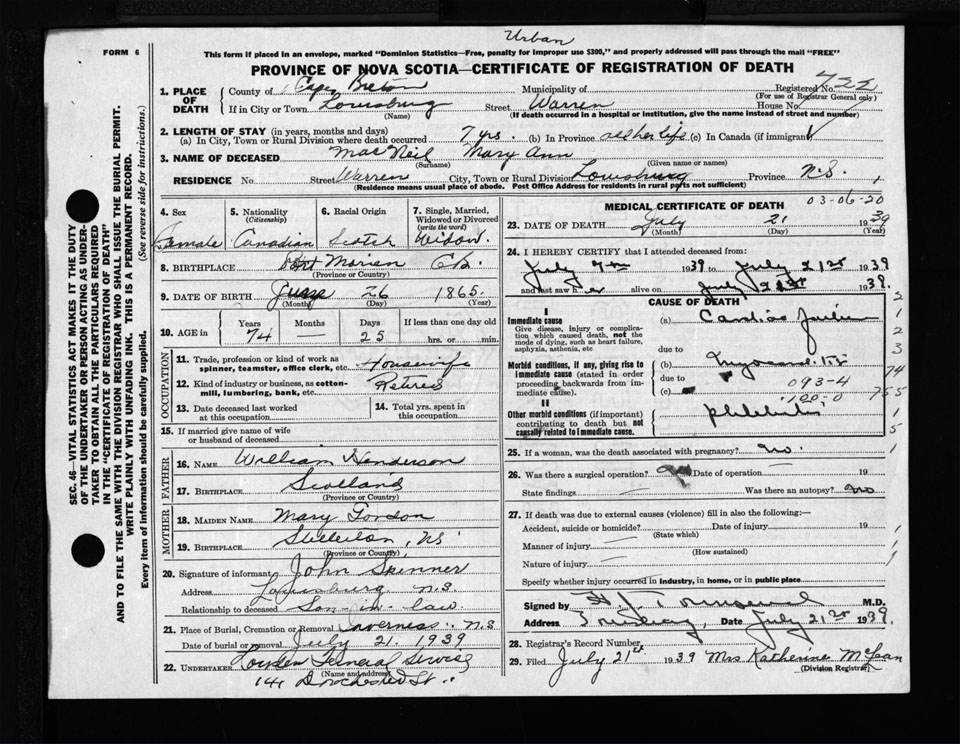 Urban
FORM 6
This form if placed in an envelope, marked "Dominion Statistics—Free, penalty for improper use $300," and properly addressed will pass through the mail "FREE"
PROVINCE OF NOVA SCOTIA—CERTIFICATE OF REGISTRATION OF DEATH
SEC. 46—VITAL STATISTICS ACT MAKES IT THE DUTY
OF THE UNDERTAKER OR PERSON ACTING AS UNDER-
TAKER TO OBTAIN ALL THE PARTICULARS REQUIRED
IN THE "CERTIFICATE OF REGISTRATION OF DEATH"
AND TO FILE THE SAME WITH THE DIVISION REGISTRAR WHO SHALL ISSUE THE BURIAL PERMIT.
WRITE PLAINLY WITH UNFADING INK. THIS IS A PERMANENT RECORD.
Every item of information should be carefully supplied. (See reverse side for instructions.)
1. PLACE OF DEATH
County of Cape Breton Municipality of Registered No. 722
(For use of Registrar General only)
If in City or Town Louisburg Street Warren House No.
(Name) (If death occurred in a hospital or institution, give the name instead of street and number)
2. LENGTH OF STAY (in years, months and days)
(a) In City, Town or Rural Division where death occurred 7 yrs. (b) In Province all her life (c) In Canada (if immigrant)
3. NAME OF DECEASED MacNeil Mary Ann
(Surname) (Given name or names)
RESIDENCE No. Street Warren City, Town or Rural Division Louisburg Province N.S.
(Residence means usual place of abode. Post Office Address for residents in rural parts not sufficient)
4. Sex Female
5. Nationality (Citizenship) Canadian
6. Racial Origin Scotch
7. Single, Married, Widowed or Divorced (write the word) Widow.
8. BIRTHPLACE Port Morien C.B.
(Province or Country)
9. DATE OF BIRTH June 26 1865.
(Month) (Day) (Year)
10. AGE in Years Months Days If less than one day
74 25 hrs. or min.
OCCUPATION
11. Trade, profession or kind of work as spinner, teamster, office clerk, etc. Housewife
12. Kind of industry or business, as cotton-mill, lumbering, bank, etc. Retired
13. Date deceased last worked at this occupation
14. Total yrs. spent in this occupation
15. If married give name of wife or husband of deceased
FATHER
16. NAME William Henderson
17. BIRTHPLACE Scotland
(Province or Country)
MOTHER
18. MAIDEN NAME Mary Gordon
19. BIRTHPLACE Stellarton, N.S.
(Province or Country)
20. Signature of informant John Skinner
Address Louisburg N.S.
Relationship to deceased Son-in-law.
21. Place of Burial, Cremation or Removal Inverness N.S
Date of burial or removal July 21. 1939
22. UNDERTAKER Funeral Service
(Name and address)
141 Dorchester St.
MEDICAL CERTIFICATE OF DEATH
03-06-20
23. DATE OF DEATH July 21 1939
(Month) (Day) (Year)
24. I HEREBY CERTIFY that I attended deceased from:
July 7th 1939 to July 21st 1939
and last saw her alive on July 21st 1939.
CAUSE OF DEATH
I
Immediate cause (a) Cardiac Failure
Give disease, injury or complication which caused death, not the mode of dying, such as heart failure, asphyxia, asthenia, etc.
due to
Morbid conditions, if any, giving rise to immediate cause (stated in order proceeding backwards from immediate cause).
(b) Myocarditis
due to 093-4
(c) 100-0
II
Other morbid conditions (if important) contributing to death but not causally related to immediate cause. Phlebitis
25. If a woman, was the death associated with pregnancy? No.
26. Was there a surgical operation? Date of operation 19
State findings Was there an autopsy? No
27. If death was due to external causes (violence) fill in also the following:—
Accident, suicide or homicide? Date of injury 19
(State which)
Manner of injury
(How sustained)
Nature of injury
Specify whether injury occurred in industry, in home, or in public place
Signed by Townsend M.D.
Address Date July 21st 1939.
28. Registrar's Record Number
29. Filed July 21st 1939 Mrs Katherine McLean
(Division Registrar)